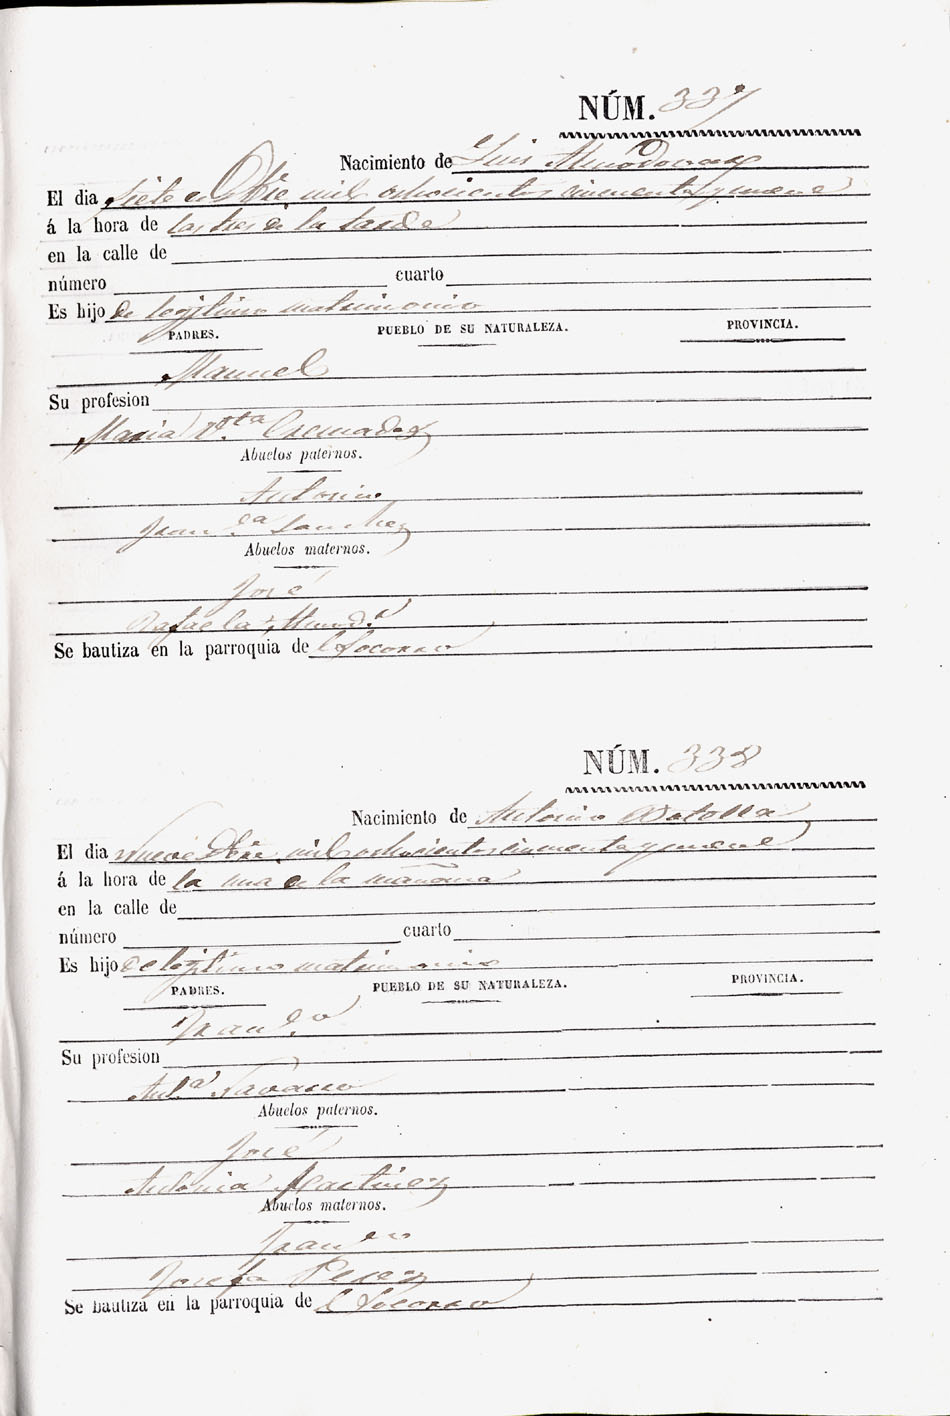 NÚM. 337
Nacimiento de Luis Almodovar
El dia siete de Dbre. mil ochocientos cincuenta y nueve
á la hora de las tres de la tarde
en la calle de
número cuarto
Es hijo de legitimo matrimonio
PADRES. PUEBLO DE SU NATURALEZA. PROVINCIA.
Manuel
Su profesion
Maria V.ta Cremades
Abuelos paternos.
Antonio
Fran.ca Sanchez
Abuelos maternos.
José
Rafaela
Se bautiza en la parroquia de l Socorro
NÚM. 338
Nacimiento de Antonio
El dia nueve Dbre. mil ochocientos cincuenta y nueve
á la hora de la una de la mañana
en la calle de
número cuarto
Es hijo de legitimo matrimonio
PADRES. PUEBLO DE SU NATURALEZA. PROVINCIA.
Fran.co
Su profesion
Ant.a Navarro
Abuelos paternos.
José
Antonia Martinez
Abuelos maternos.
Fran.co
Josefa Perez
Se bautiza en la parroquia de l Socorro